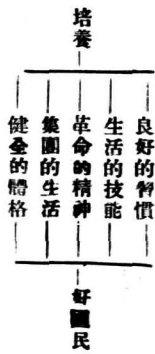 培養
良好的習慣
生活的技能
革命的精神
集團的生活
健全的體格
好國民